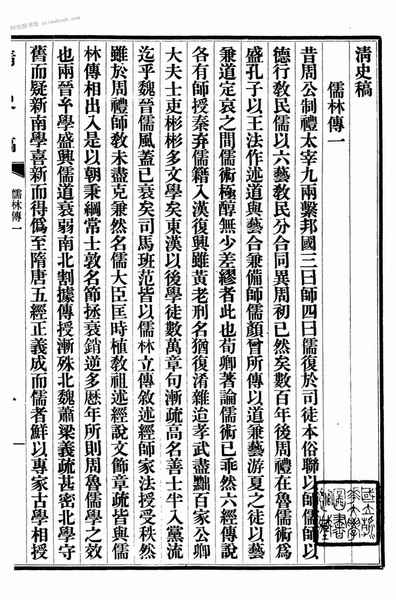 清史稿
儒林傳一
昔周公制禮太宰九兩繫邦國三曰師四曰儒復於司徒本俗聯以師儒師以
德行敎民儒以六藝敎民分合同異周初已然矣數百年後周禮在魯儒術爲
盛孔子以王法作述道與藝合兼備師儒顏曾所傳以道兼藝游夏之徒以藝
兼道定哀之間儒術極醇無少差繆者此也荀卿著論儒術已乖然六經傳說
各有師授秦弃儒籍入漢復興雖黃老刑名猶復淆雜迨孝武盡黜百家公卿
大夫士吏彬彬多文學矣東漢以後學徒數萬章句漸疏高名善士半入黨流
迄乎魏晉儒風蓋已衰矣司馬班范皆以儒林立傳敘述經師家法授受秩然
雖於周禮師敎未盡克兼然名儒大臣匡時植敎祖述經說文飾章疏皆與儒
林傳相出入是以朝秉綱常士敦名節拯衰銷逆多歷年所則周魯儒學之效
也兩晉玄學盛興儒道衰弱南北割據傳授漸殊北魏蕭梁義疏甚密北學守
舊而疑新南學喜新而得僞至隋唐五經正義成而儒者鮮以專家古學相授
儒林傳一
一